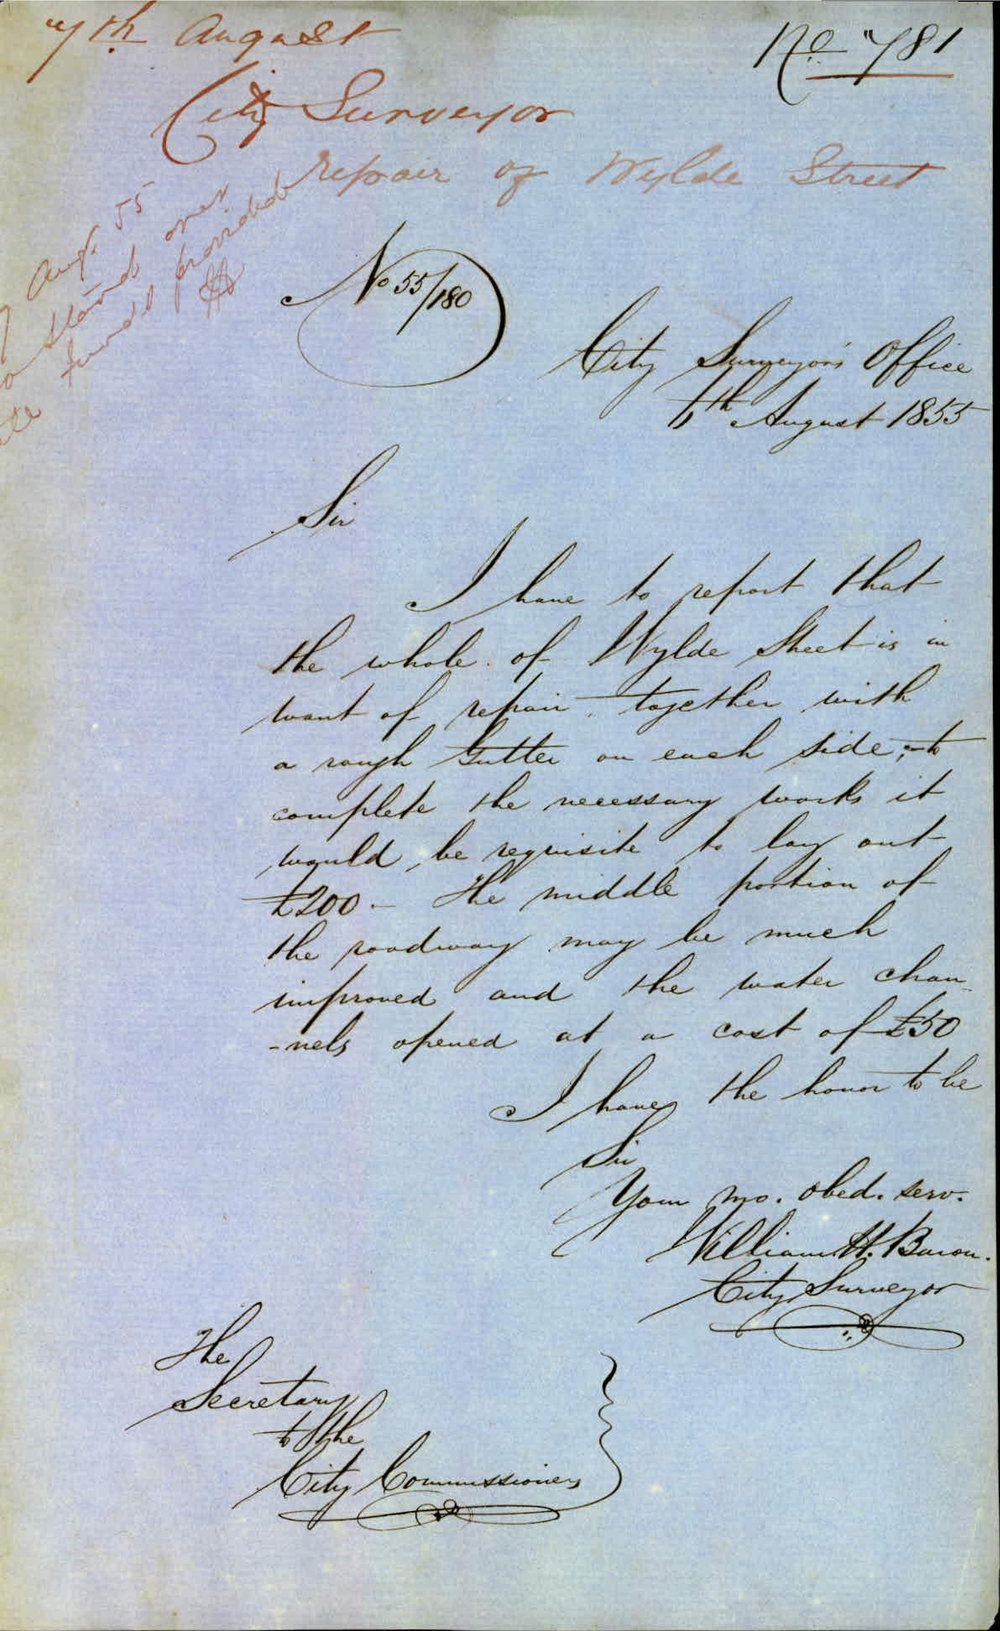 7th August
No 781
City Surveyor
repair of Wylde Street
Aug. 55
stand over
funds provided
No 55/180
City Surveyor's Office
6th August 1855
Sir
I have to report that
the whole of Wylde Street is in
want of repair together with
a rough Gutter on each side, to
complete the necessary works it
would be requisite to lay out
£200 - The middle portion of
the roadway may be much
improved and the water chan-
-nels opened at a cost of £50
I have the honor to be
Sir
Your mo. obed. serv.
William H. Baron.
City Surveyor
The
Secretary
to the
City Commissioners